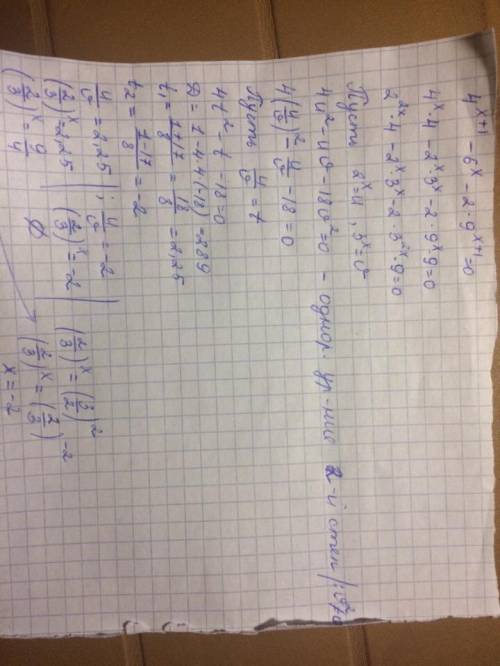 4^{x+1} - 6^x - 2 · 9^{x+1} = 0
4^x · 4 - 2^x · 3^x - 2 · 9^x · 9 = 0
2^{2x} · 4 - 2^x · 3^x - 2 · 3^{2x} · 9 = 0
Пусть 2^x = u, 3^x = v
4u² - uv - 18v² = 0 - однор. ур-ние 2-й степ |: v² ≠ 0
4(u/v)² - u/v - 18 = 0
Пусть u/v = t
4t² - t - 18 = 0
D = 1 - 4·4(-18) = 289
t₁ = (1+17)/8 = 18/8 = 2,25
t₂ = (1-17)/8 = -2
u/v = 2,25 ; u/v = -2
(2/3)^x = 2,25 (2/3)^x = -2 (2/3)^x = (3/2)^2
(2/3)^x = 9/4 Ø (2/3)^x = (2/3)^{-2}
x = -2